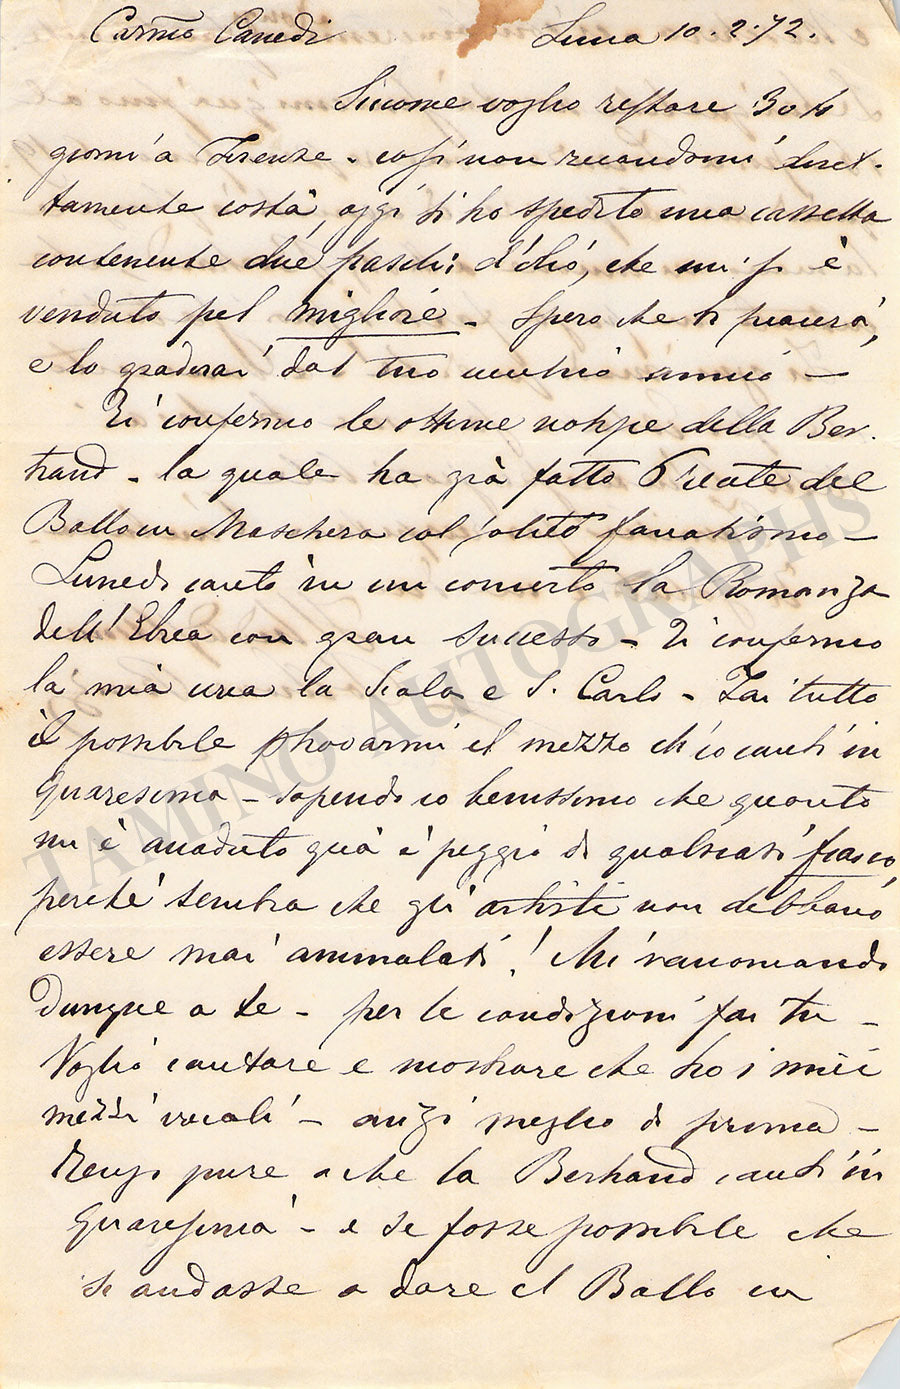 Carmo Canedi Lucca 10. 2. 72.
Siccome voglio restare 3 o 4
giorni a Firenze - così non recandomi diret-
tamente costà, oggi ti ho spedito una cassetta
contenente due fiaschi d'olio, che mi si è
venduto pel migliore - Spero che ti piacerà,
e lo gradirai dal tuo vecchio amico -
Ti confermo le ottime notizie della Ber-
trand - la quale ha già fatto 6 recite del
Ballo in Maschera col solito fanatismo -
Lunedi cantò in un concerto la Romanza
dell'Ebrea con gran successo - Ti confermo
la mia una la Scala e S. Carlo - Fai tutto
il possibile trovarmi il mezzo ch'io canti in
Quaresima - sapendo io benissimo che quanto
mi è accaduto quà è peggio di qualsiasi fiasco,
perchè sembra che gli artisti non debbano
essere mai ammalati! Mi raccomando
dunque a te - per le condizioni fai tu -
Voglio cantare e mostrare che ho i miei
mezzi vocali - anzi meglio di prima -
Tengo pure a che la Bertrand canti in
Quaresima - e se fosse possibile che
si andasse a dare il Ballo in
TAMINO AUTOGRAPHS